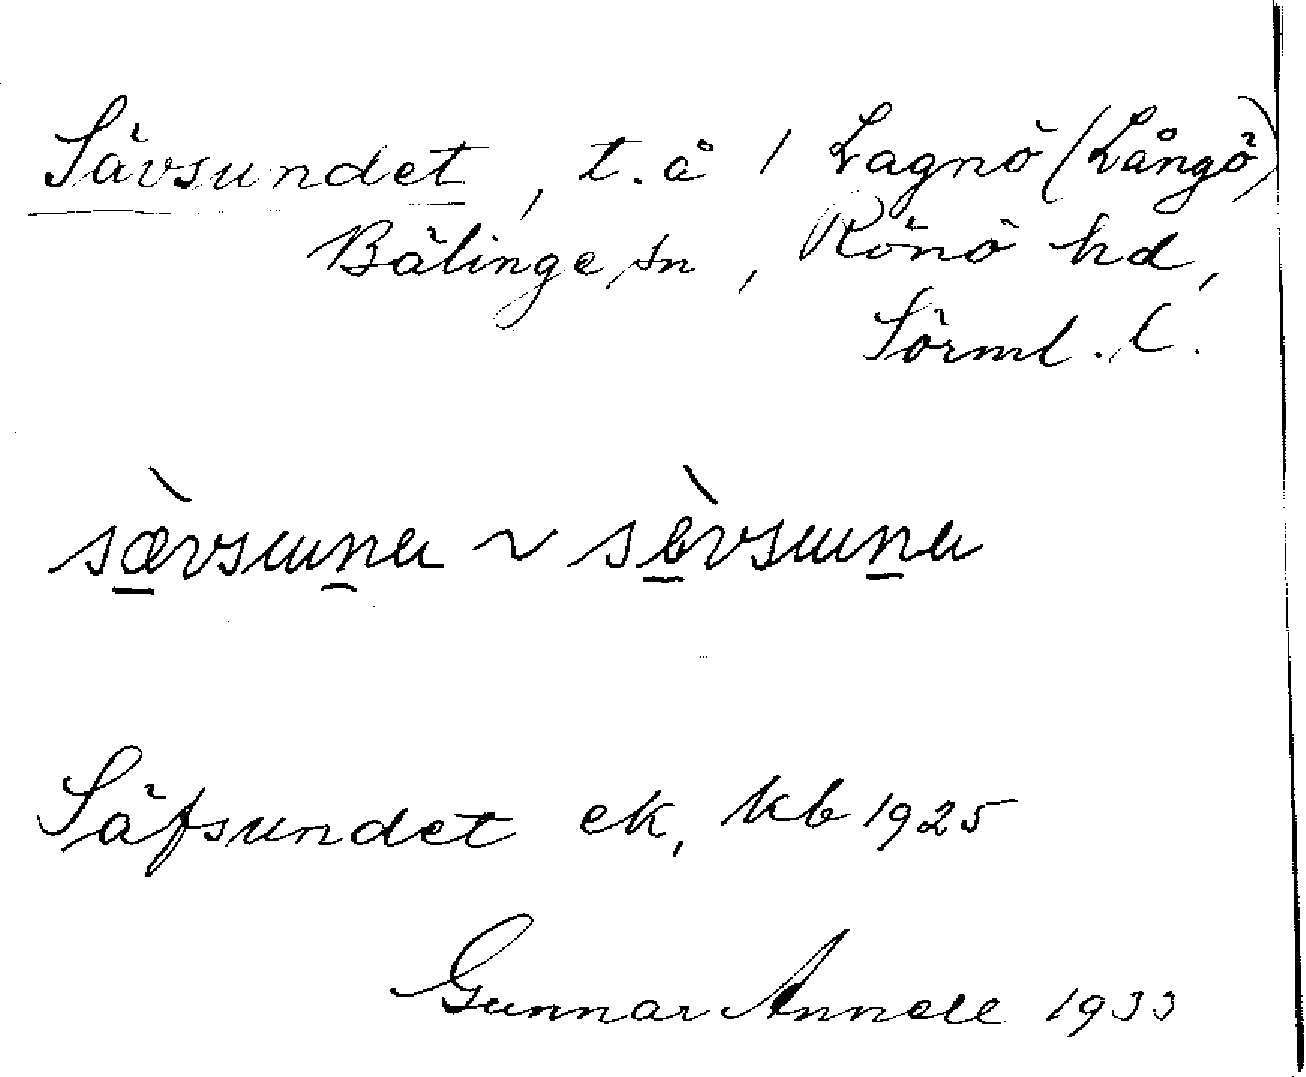 Sävsundet, t. å 1 Lagnö (Långö)
Bälinge sn, Rönö hd,
Sörml. l.
sævsuna ~ sèvsuna
Säfsundet ek, kb 1925
Gunnar Annell 1933